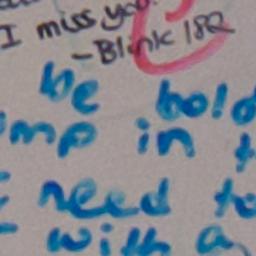 I miss you.
-Blink 182
be bold
ump in
need to
with a